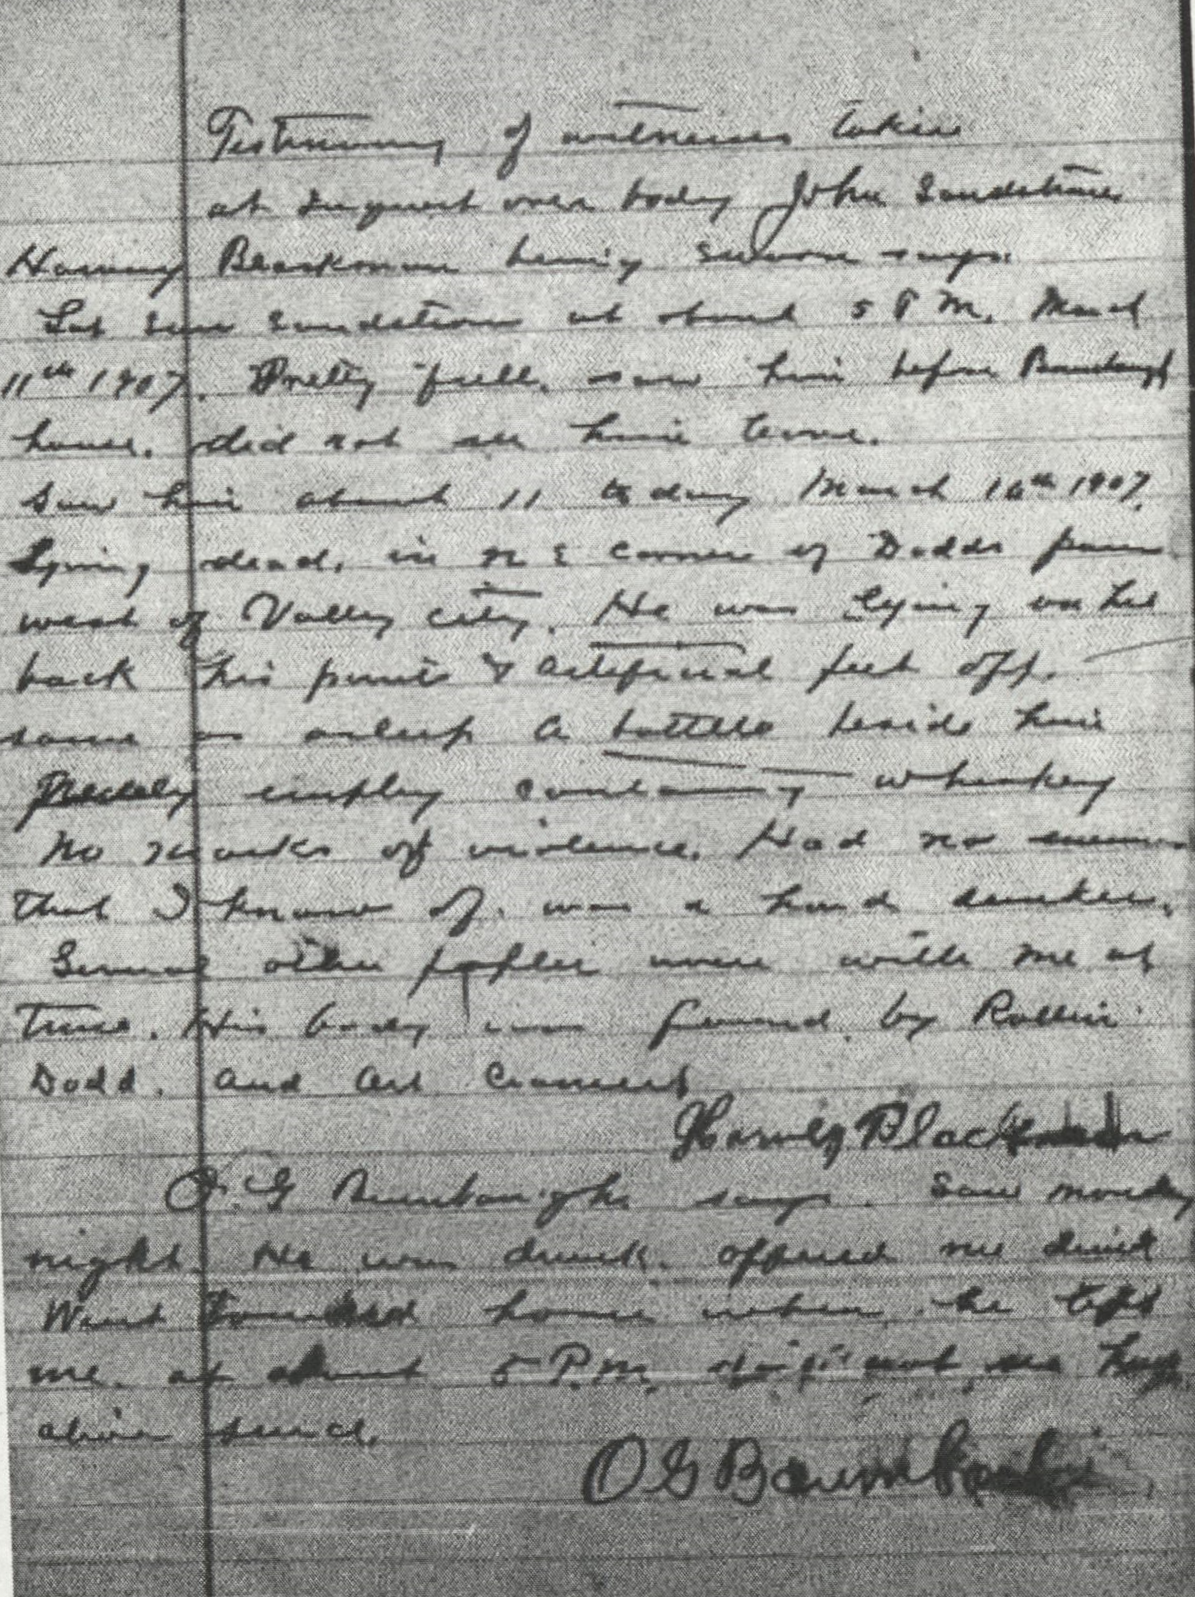 Testimony of witnesses taken
at Inquest over body John Sandstrom
Harvey Blackman being sworn says.
Last seen Sandstrom at about 5 P M. March
11th 1907. Pretty full, saw him before
house. did not see him leave.
Saw him about 11 today March 1907.
Lying dead, in N E corner of Dodds farm
west of Valley City. He was lying on his
back his pants & artificial feet off.
same as asleep A bottle beside him
empty containing whiskey
No marks of violence. Had no enemies
that I know of. was a hard drinker.
Several other people were with me at
time. His body was found by Rollin
Dodd. and Art
Harvey Blackman
O. G says. Saw monday
night. He was drunk. offered me drink
Went toward home when he left
me. at about 5 P.M. did not see him
alive since.
O G Baumbach